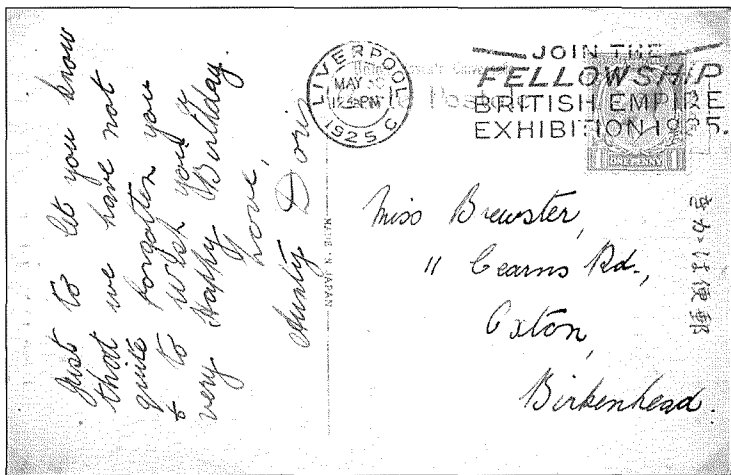 Just to let you know
that we have not
quite forgotten you
& to wish you a
very Happy Birthday.
Love,
Aunty Doris
MADE IN JAPAN
LIVERPOOL
MAY
PM
1925 C
JOIN THE
FELLOWSHIP
BRITISH EMPIRE
EXHIBITION 1925.
Miss Brewster,
11 Cearns Rd.,
Oxton,
Birkenhead.
郵便はかき